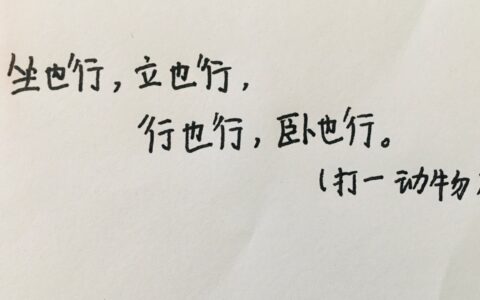 坐也行,立也行,
行也行,卧也行。
(打一动物)